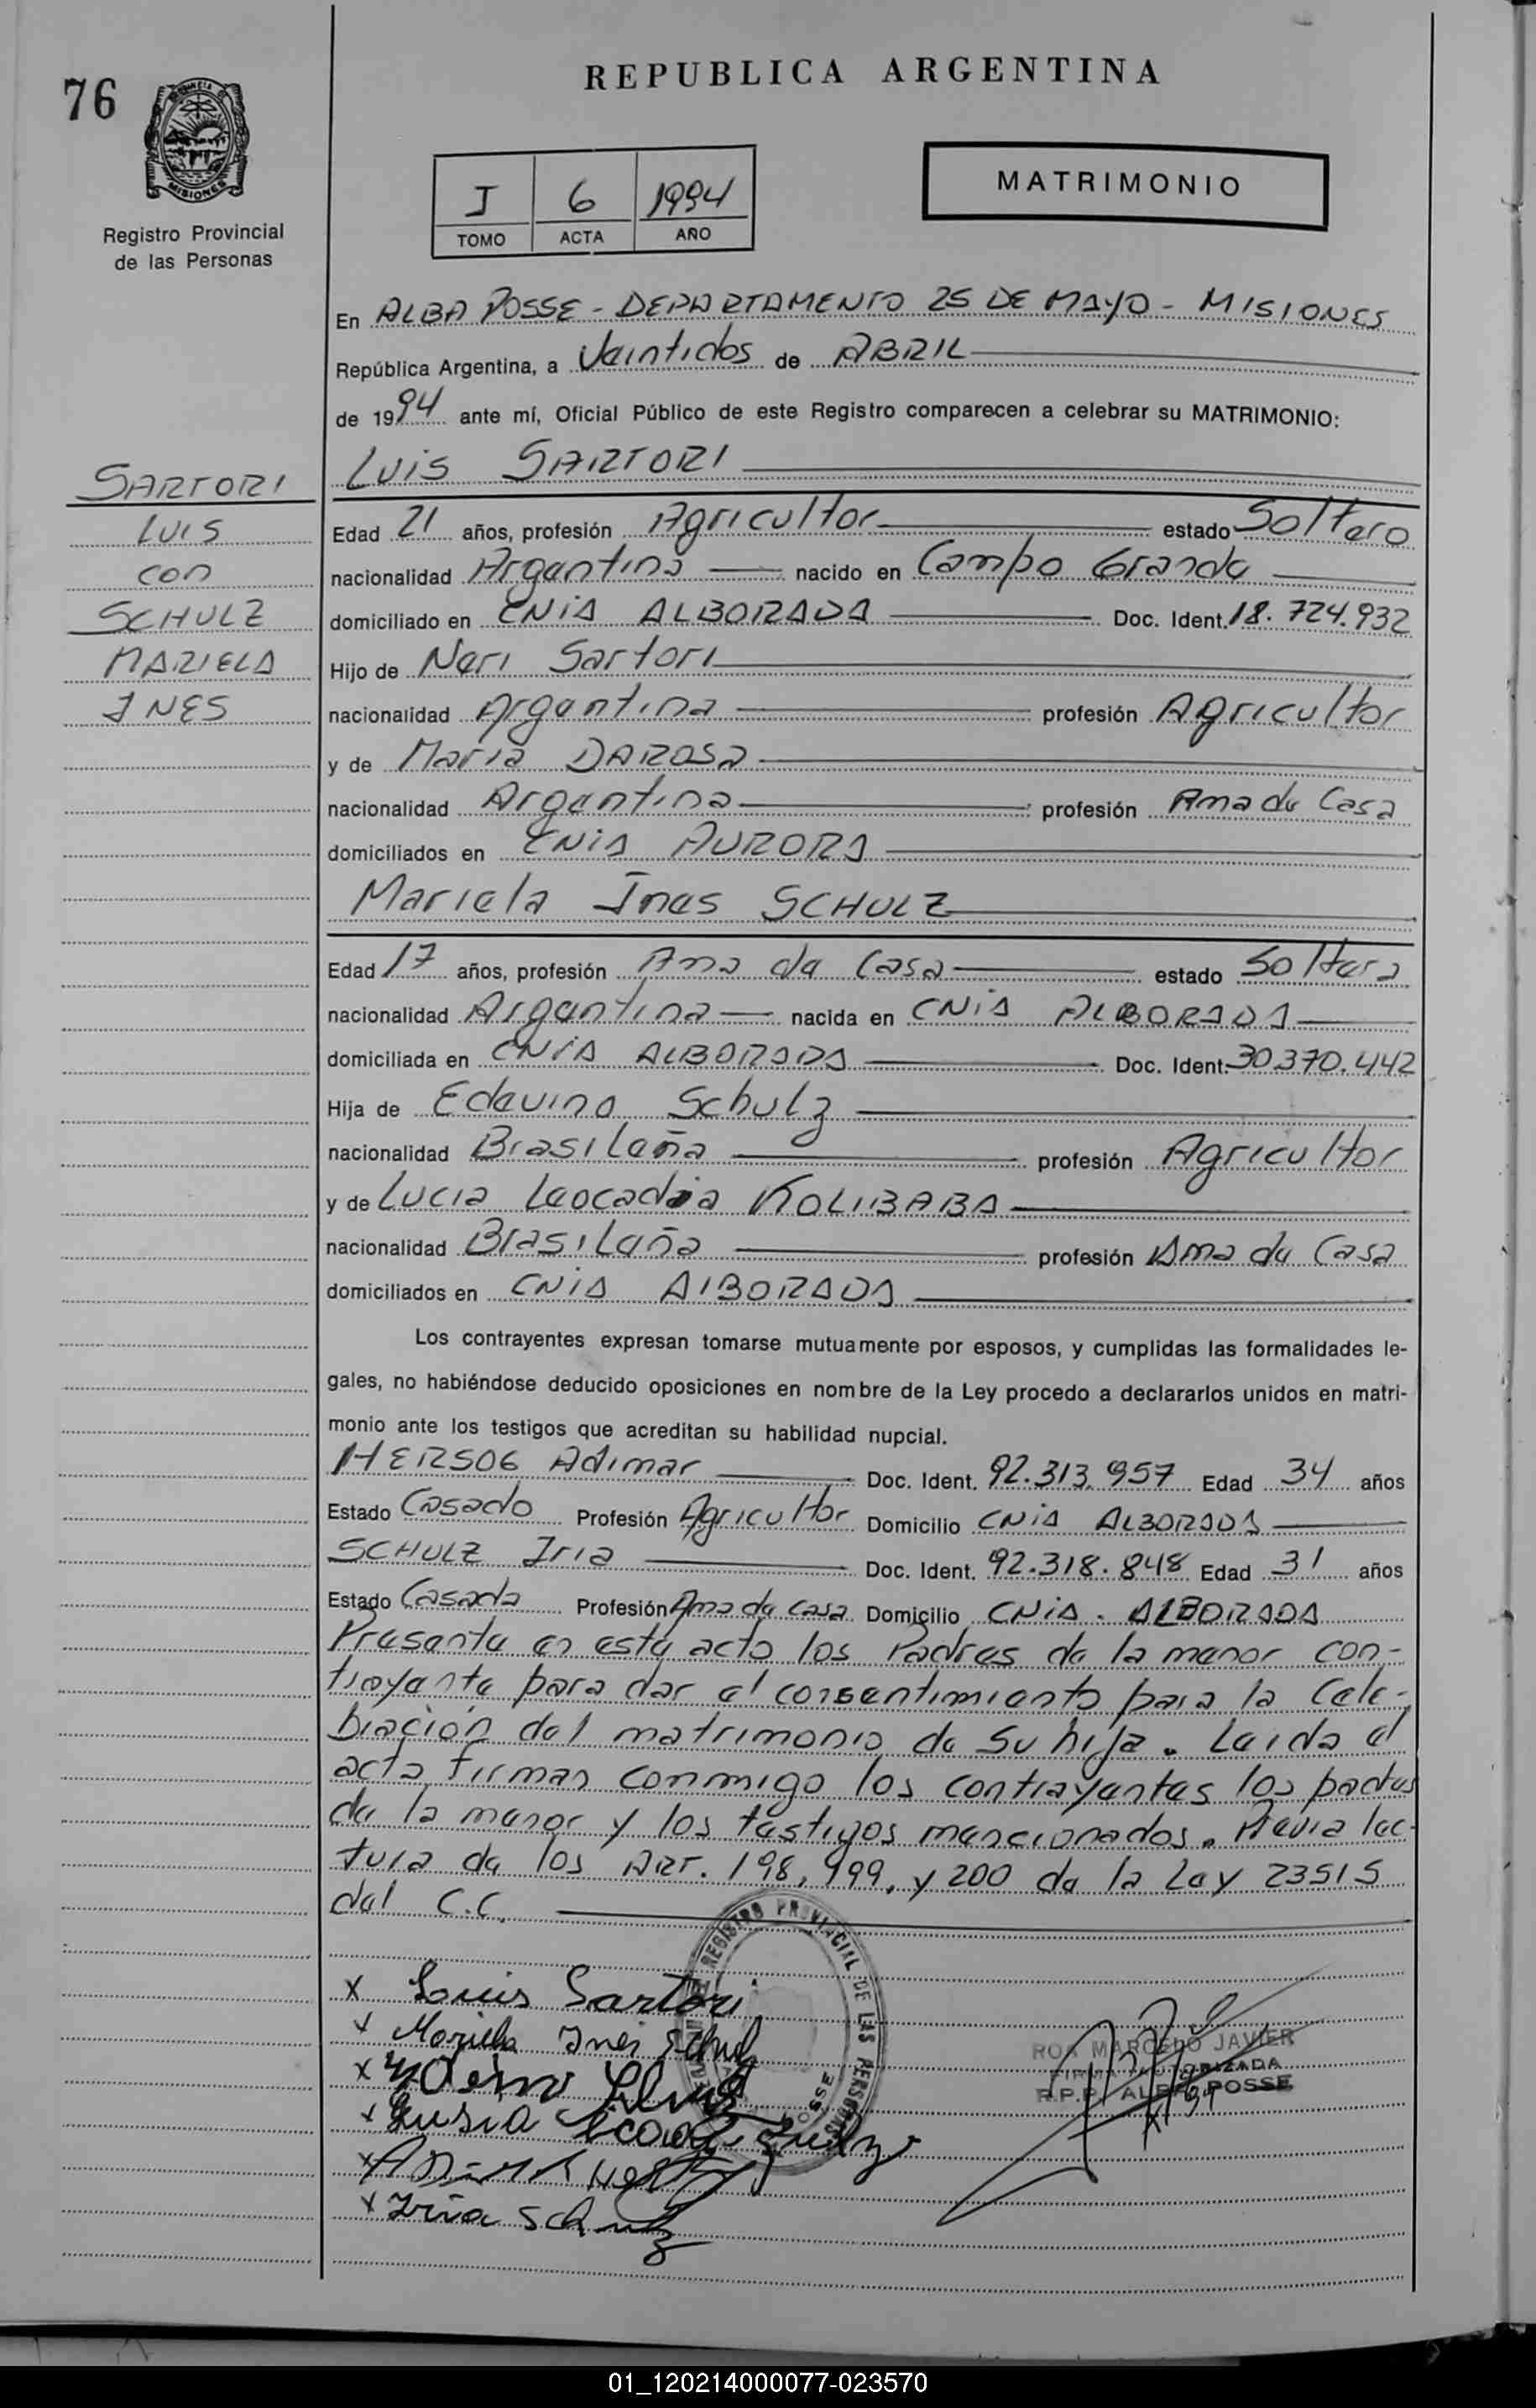 76
REPUBLICA ARGENTINA
MISIONES
Registro Provincial
de las Personas
I 6 1994
TOMO ACTA AÑO
MATRIMONIO
En ALBA POSSE - DEPARTAMENTO 25 DE MAYO - MISIONES
República Argentina, a Veintidos de ABRIL
de 1994 ante mí, Oficial Público de este Registro comparecen a celebrar su MATRIMONIO:
SARTORI
LUIS
con
SCHULZ
MARIELA
INES
Luis SARTORI
Edad 21 años, profesión Agricultor estado Soltero
nacionalidad Argentina nacido en Campo Grande
domiciliado en CNIA ALBORADA Doc. Ident. 18.724.932
Hijo de Neri Sartori
nacionalidad Argentina profesión Agricultor
y de Maria DAROSA
nacionalidad Argentina profesión Ama de Casa
domiciliados en CNIA AURORA
Mariela Ines SCHULZ
Edad 17 años, profesión Ama de Casa estado Soltera
nacionalidad Argentina nacida en CNIA ALBORADA
domiciliada en CNIA ALBORADA Doc. Ident. 30.370.442
Hija de Edevino Schulz
nacionalidad Brasileña profesión Agricultor
y de Lucia Leocadia KOLIBABA
nacionalidad Brasileña profesión Ama de Casa
domiciliados en CNIA AlBORADA
Los contrayentes expresan tomarse mutuamente por esposos, y cumplidas las formalidades le-
gales, no habiéndose deducido oposiciones en nombre de la Ley procedo a declararlos unidos en matri-
monio ante los testigos que acreditan su habilidad nupcial.
HERSOG Adimar Doc. Ident. 92.313.957 Edad 34 años
Estado Casado Profesión Agricultor Domicilio CNIA ALBORADA
SCHULZ Iria Doc. Ident. 92.318.848 Edad 31 años
Estado Casada Profesión Ama de casa Domicilio CNIA. ALBORADA
Presente en este acto los Padres de la menor con-
trayente para dar el consentimiento para la Cele-
bración del matrimonio de su hija. Leida el
acta firman conmigo los contrayentes los padres
de la menor y los testigos mencionados. Previa lec-
tura de los ART. 198, 199, y 200 de la Ley 23515
del C.C.
REGISTRO PROVINCIAL DE LAS PERSONAS
POSSE
x Louis Sartori
x Mariela Ines Schulz
x
x
x
x Iria Schulz
ROA MARCELO JAVIER
FIRMA AUTORIZADA
R.P.P. ALBA POSSE
01_120214000077-023570